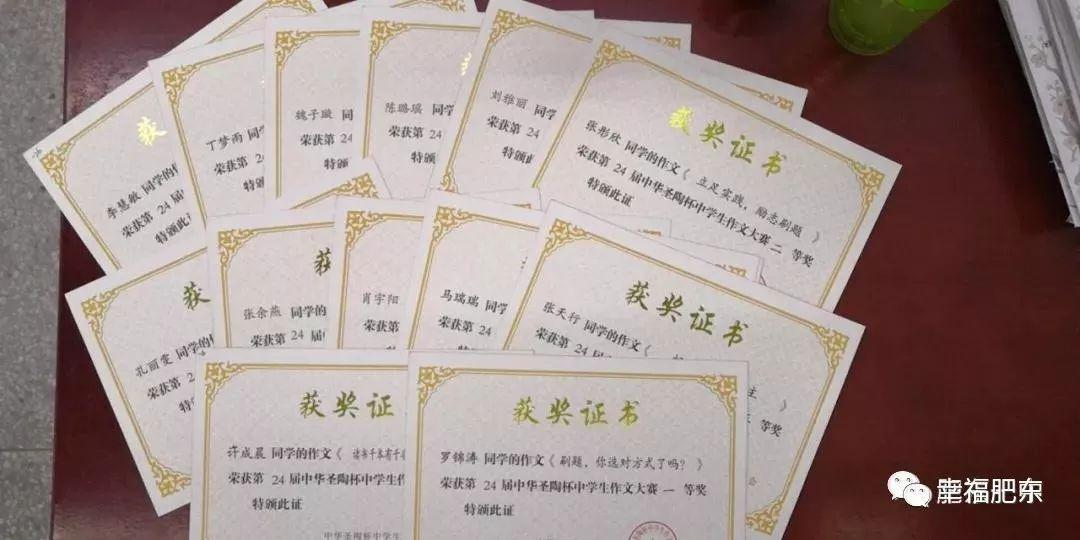 获
李慧敏 同学的
荣获第
特颁此证
丁梦雨 同学
荣获第 2
特颁
魏子璇 同
荣获第 24
特颁此
陈璐瑶 同学
荣获第 24
特颁此
刘雅丽 同学
荣获第 24
特颁此证
获奖证书
张彤欣 同学的作文《 立足实践，励志刷题 》
荣获第 24 届中华圣陶杯中学生作文大赛 二 等奖
特颁此证
获
孔丽雯 同学的
荣获第 2
特
获
张余燕 同学的
荣获第 24
特颁此证
肖宇阳
荣获第
特颁
马瑞瑞 同学
荣获第 24
特颁此证
获奖证书
张天行 同学的作文《
荣获第 24 届
等奖
获奖证
许成晨 同学的作文《 读书千本有千
荣获第 24届中华圣陶杯中学生作
特颁此证
中华圣陶杯中学生
获奖证书
罗锦涛 同学的作文《 刷题，你选对方式了吗？ 》
荣获第 24 届中华圣陶杯中学生作文大赛 一 等奖
特颁此证
幸福肥东